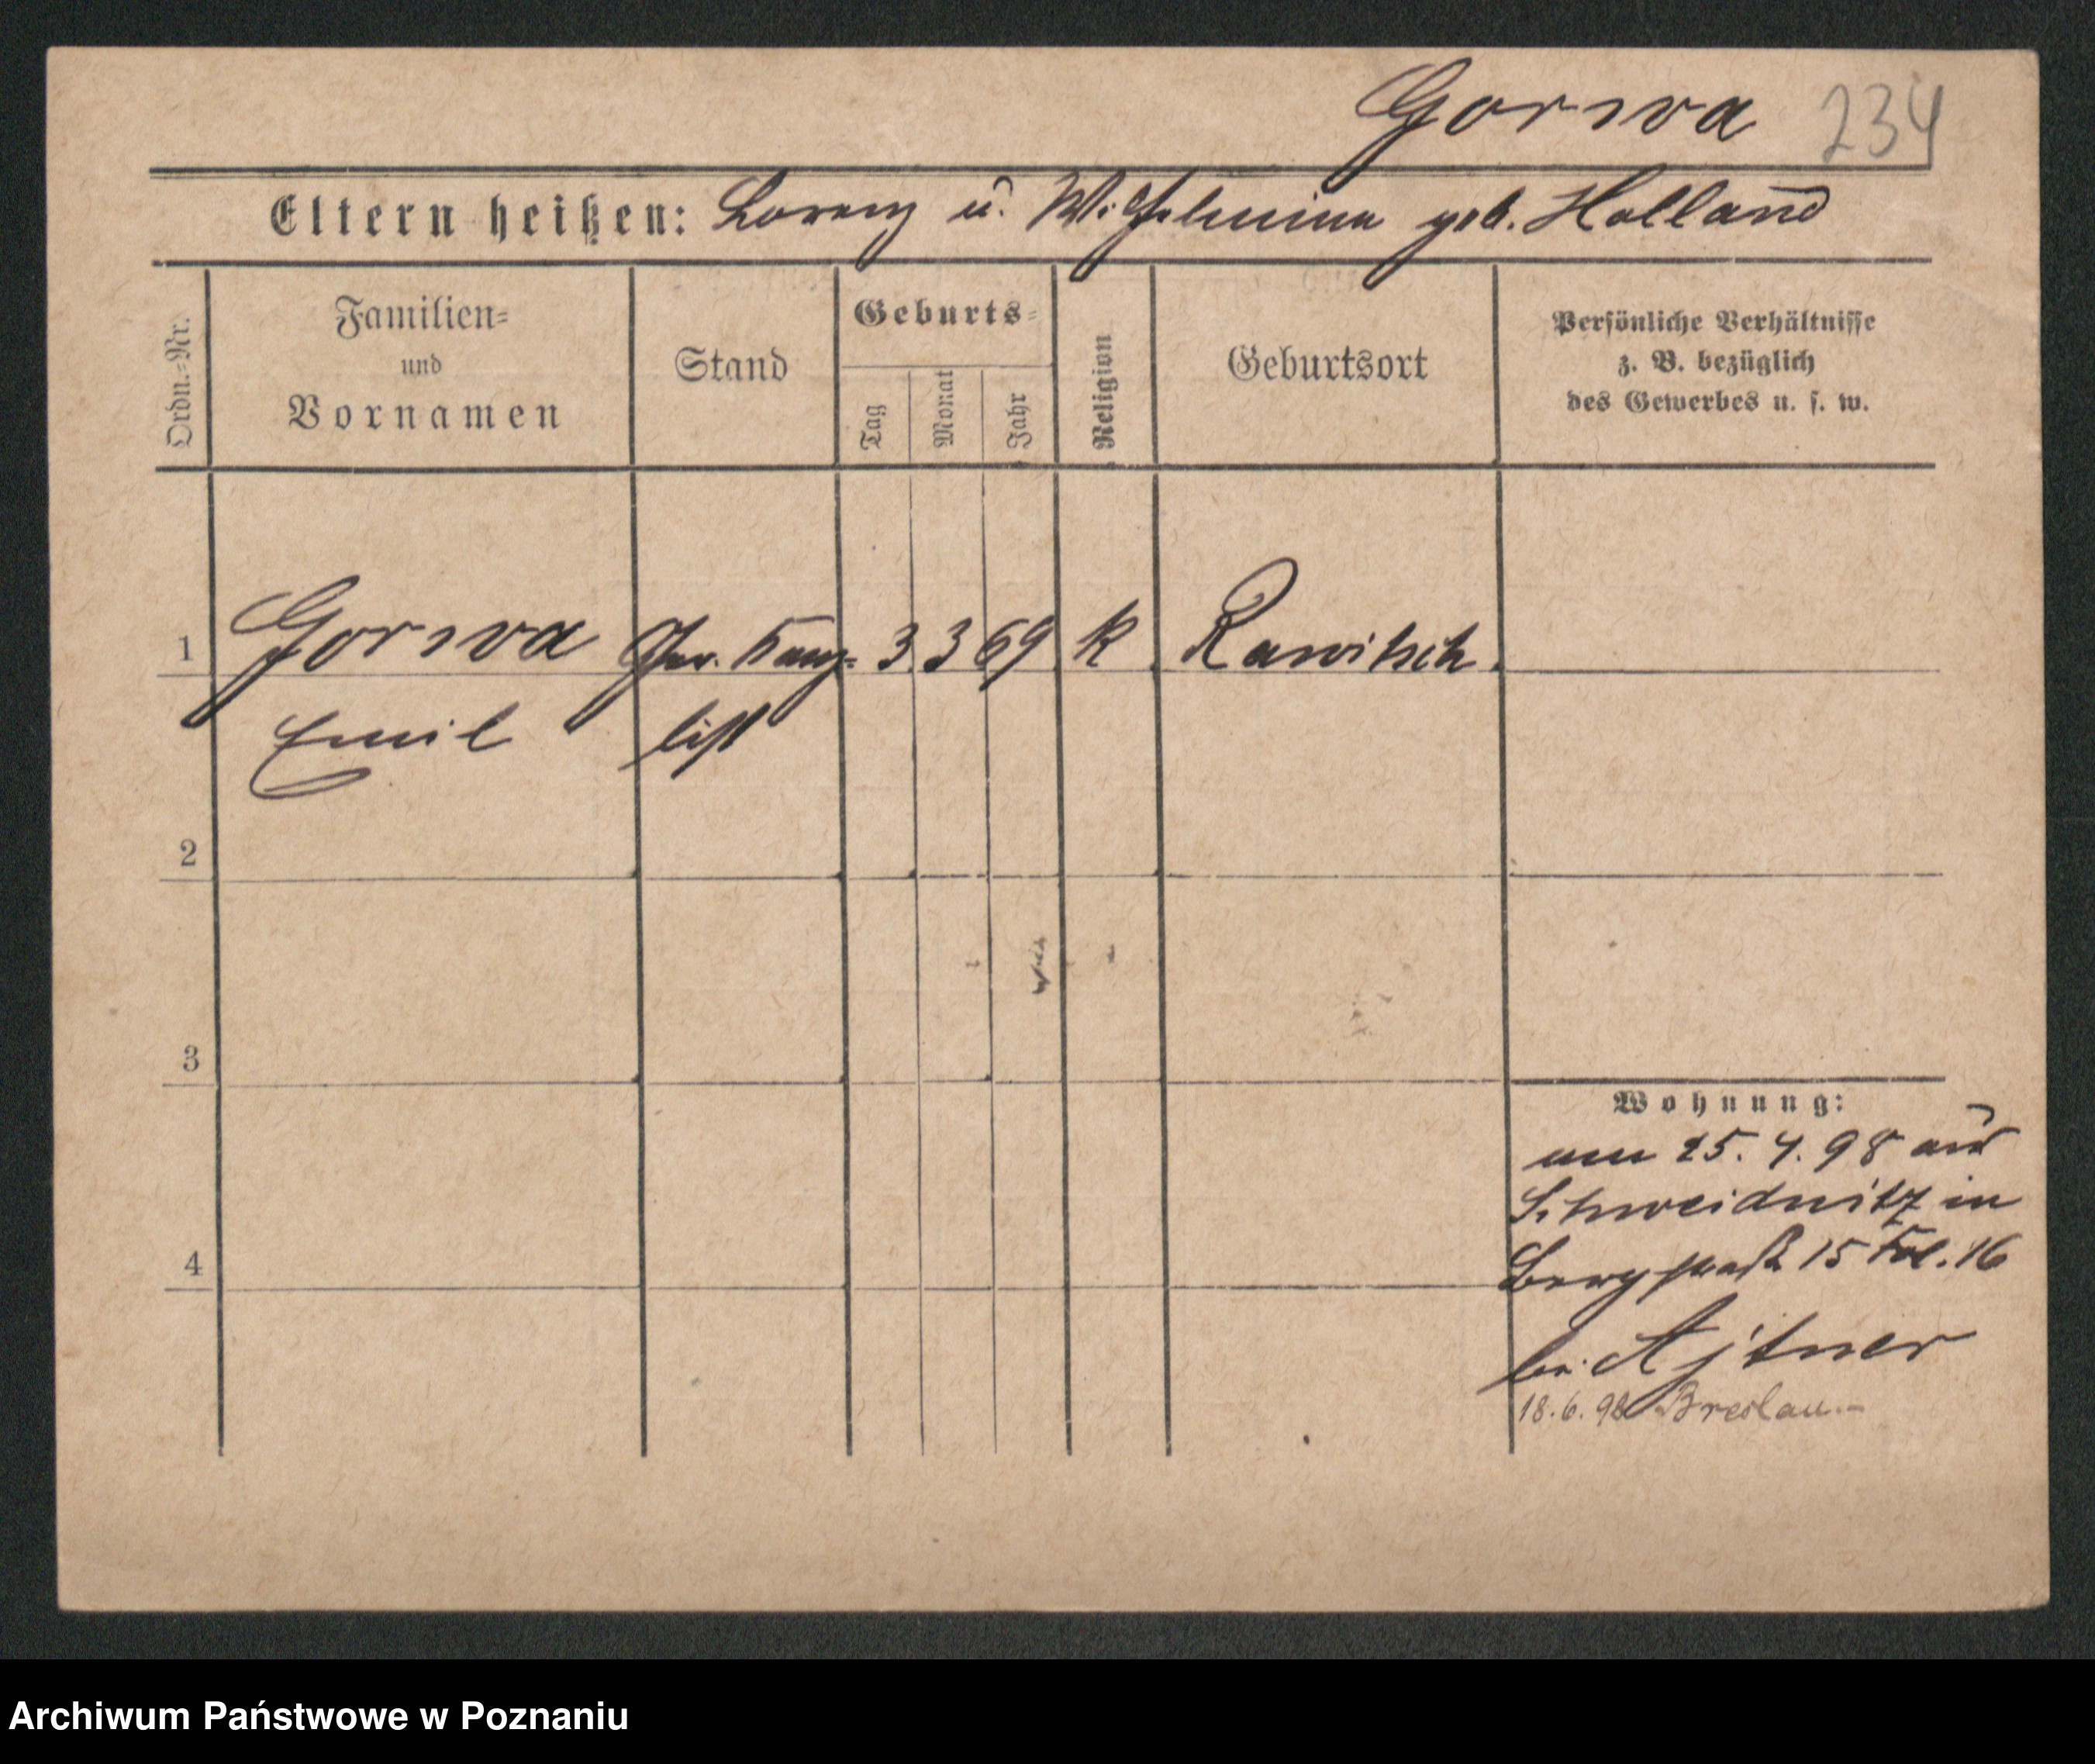 Gorwa 234
Eltern heißen: Lorenz u. Wilhelmine geb. Holland
Ordn.=Nr.
Familien=
und
Vornamen
Stand
Geburts=
Tag
Monat
Jahr
Religion
Geburtsort
Persönliche Verhältnisse
z. B. bezüglich
des Gewerbes u. s. w.
1 Gorwa Ger. Kanz= 3 3 69 K Rawitsch
Emil list
2
3
4
Wohnung:
am 25. 4. 98 aus
Schweidnitz in
Bergstraße 15 Fol. 16
bei Ajtner
18. 6. 98 Breslau.-
Archiwum Państwowe w Poznaniu